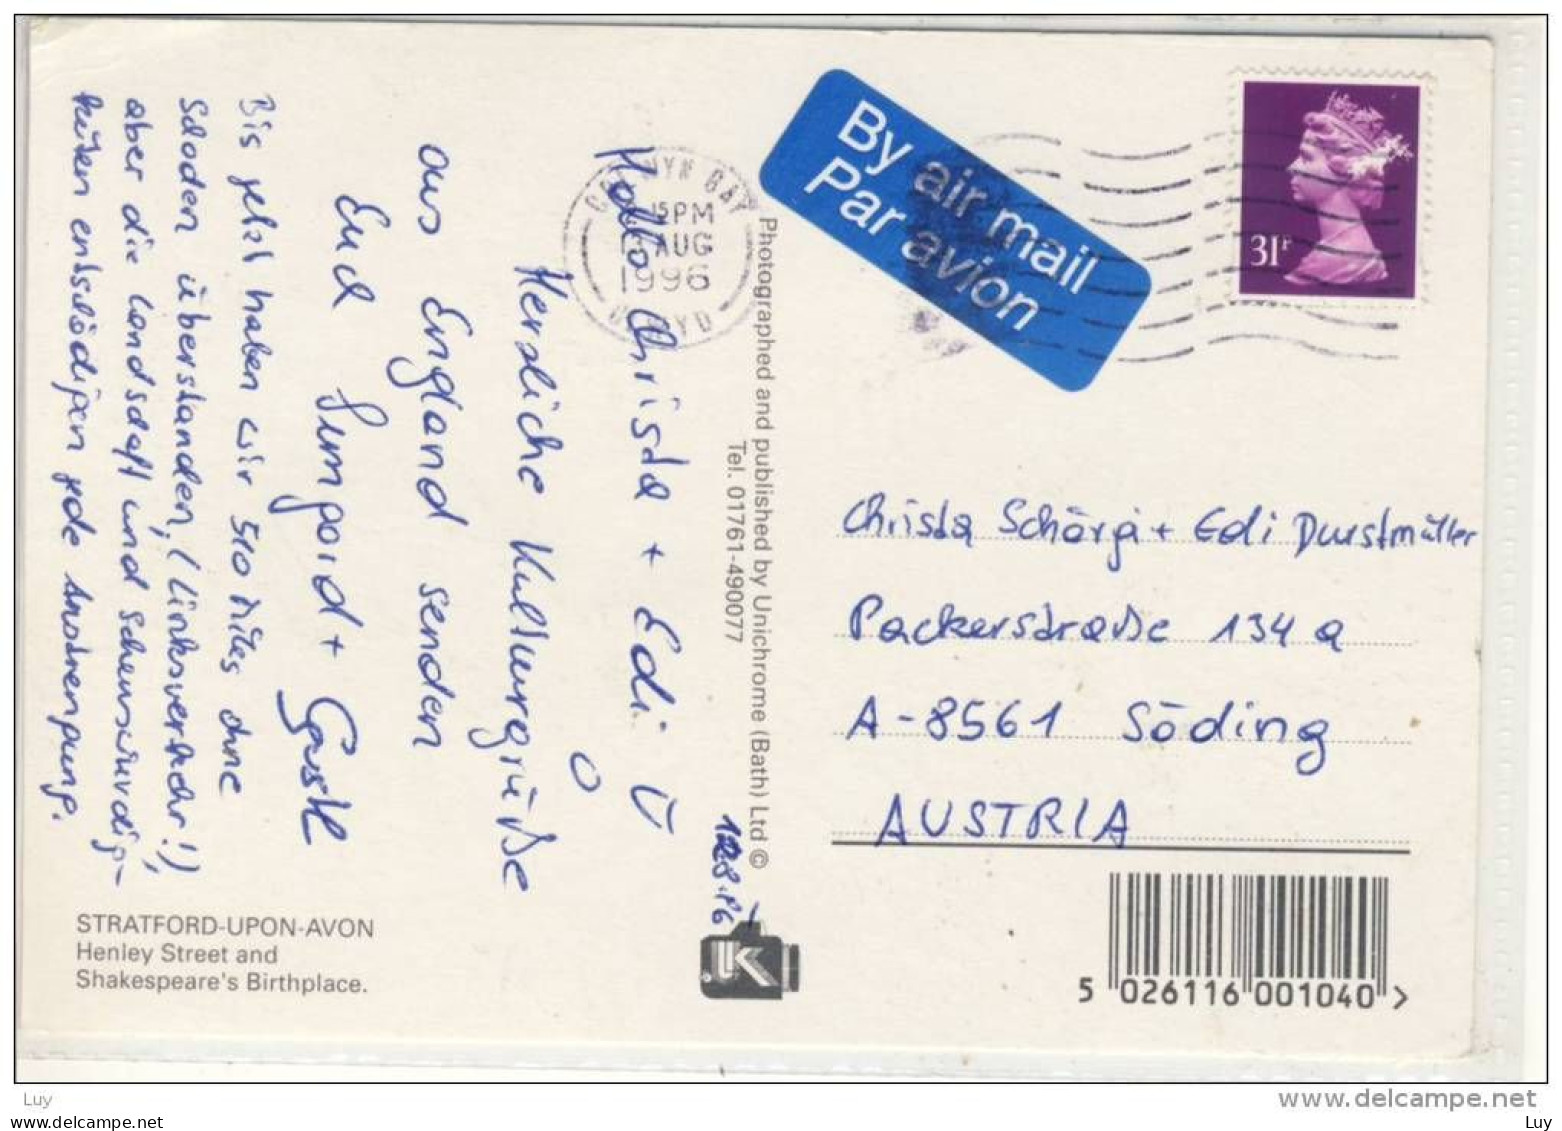 Hallo Christa + Edi Ü
Herzliche Kulturgrüße
aus England senden
Eud Lumpaid + Gustl
Bis jetzt haben wir 510 Miles ohne
Schaden überstanden, (Linksverkehr!),
aber die Landschaft und Sehenswürdig-
keiten entschädigen jede Anstrengung.
STRATFORD-UPON-AVON
Henley Street and
Shakespeare's Birthplace.
Photographed and published by Unichrome (Bath) Ltd ©
Tel. 01761-490077
BAY
15PM
AUG
1996
By air mail
Par avion
31P
Christa Schörgi + Edi Durstmüller
Packerstraße 134a
A-8561 Söding
AUSTRIA
5 026116 001040 >
www.delcampe.net
Luy
Luy